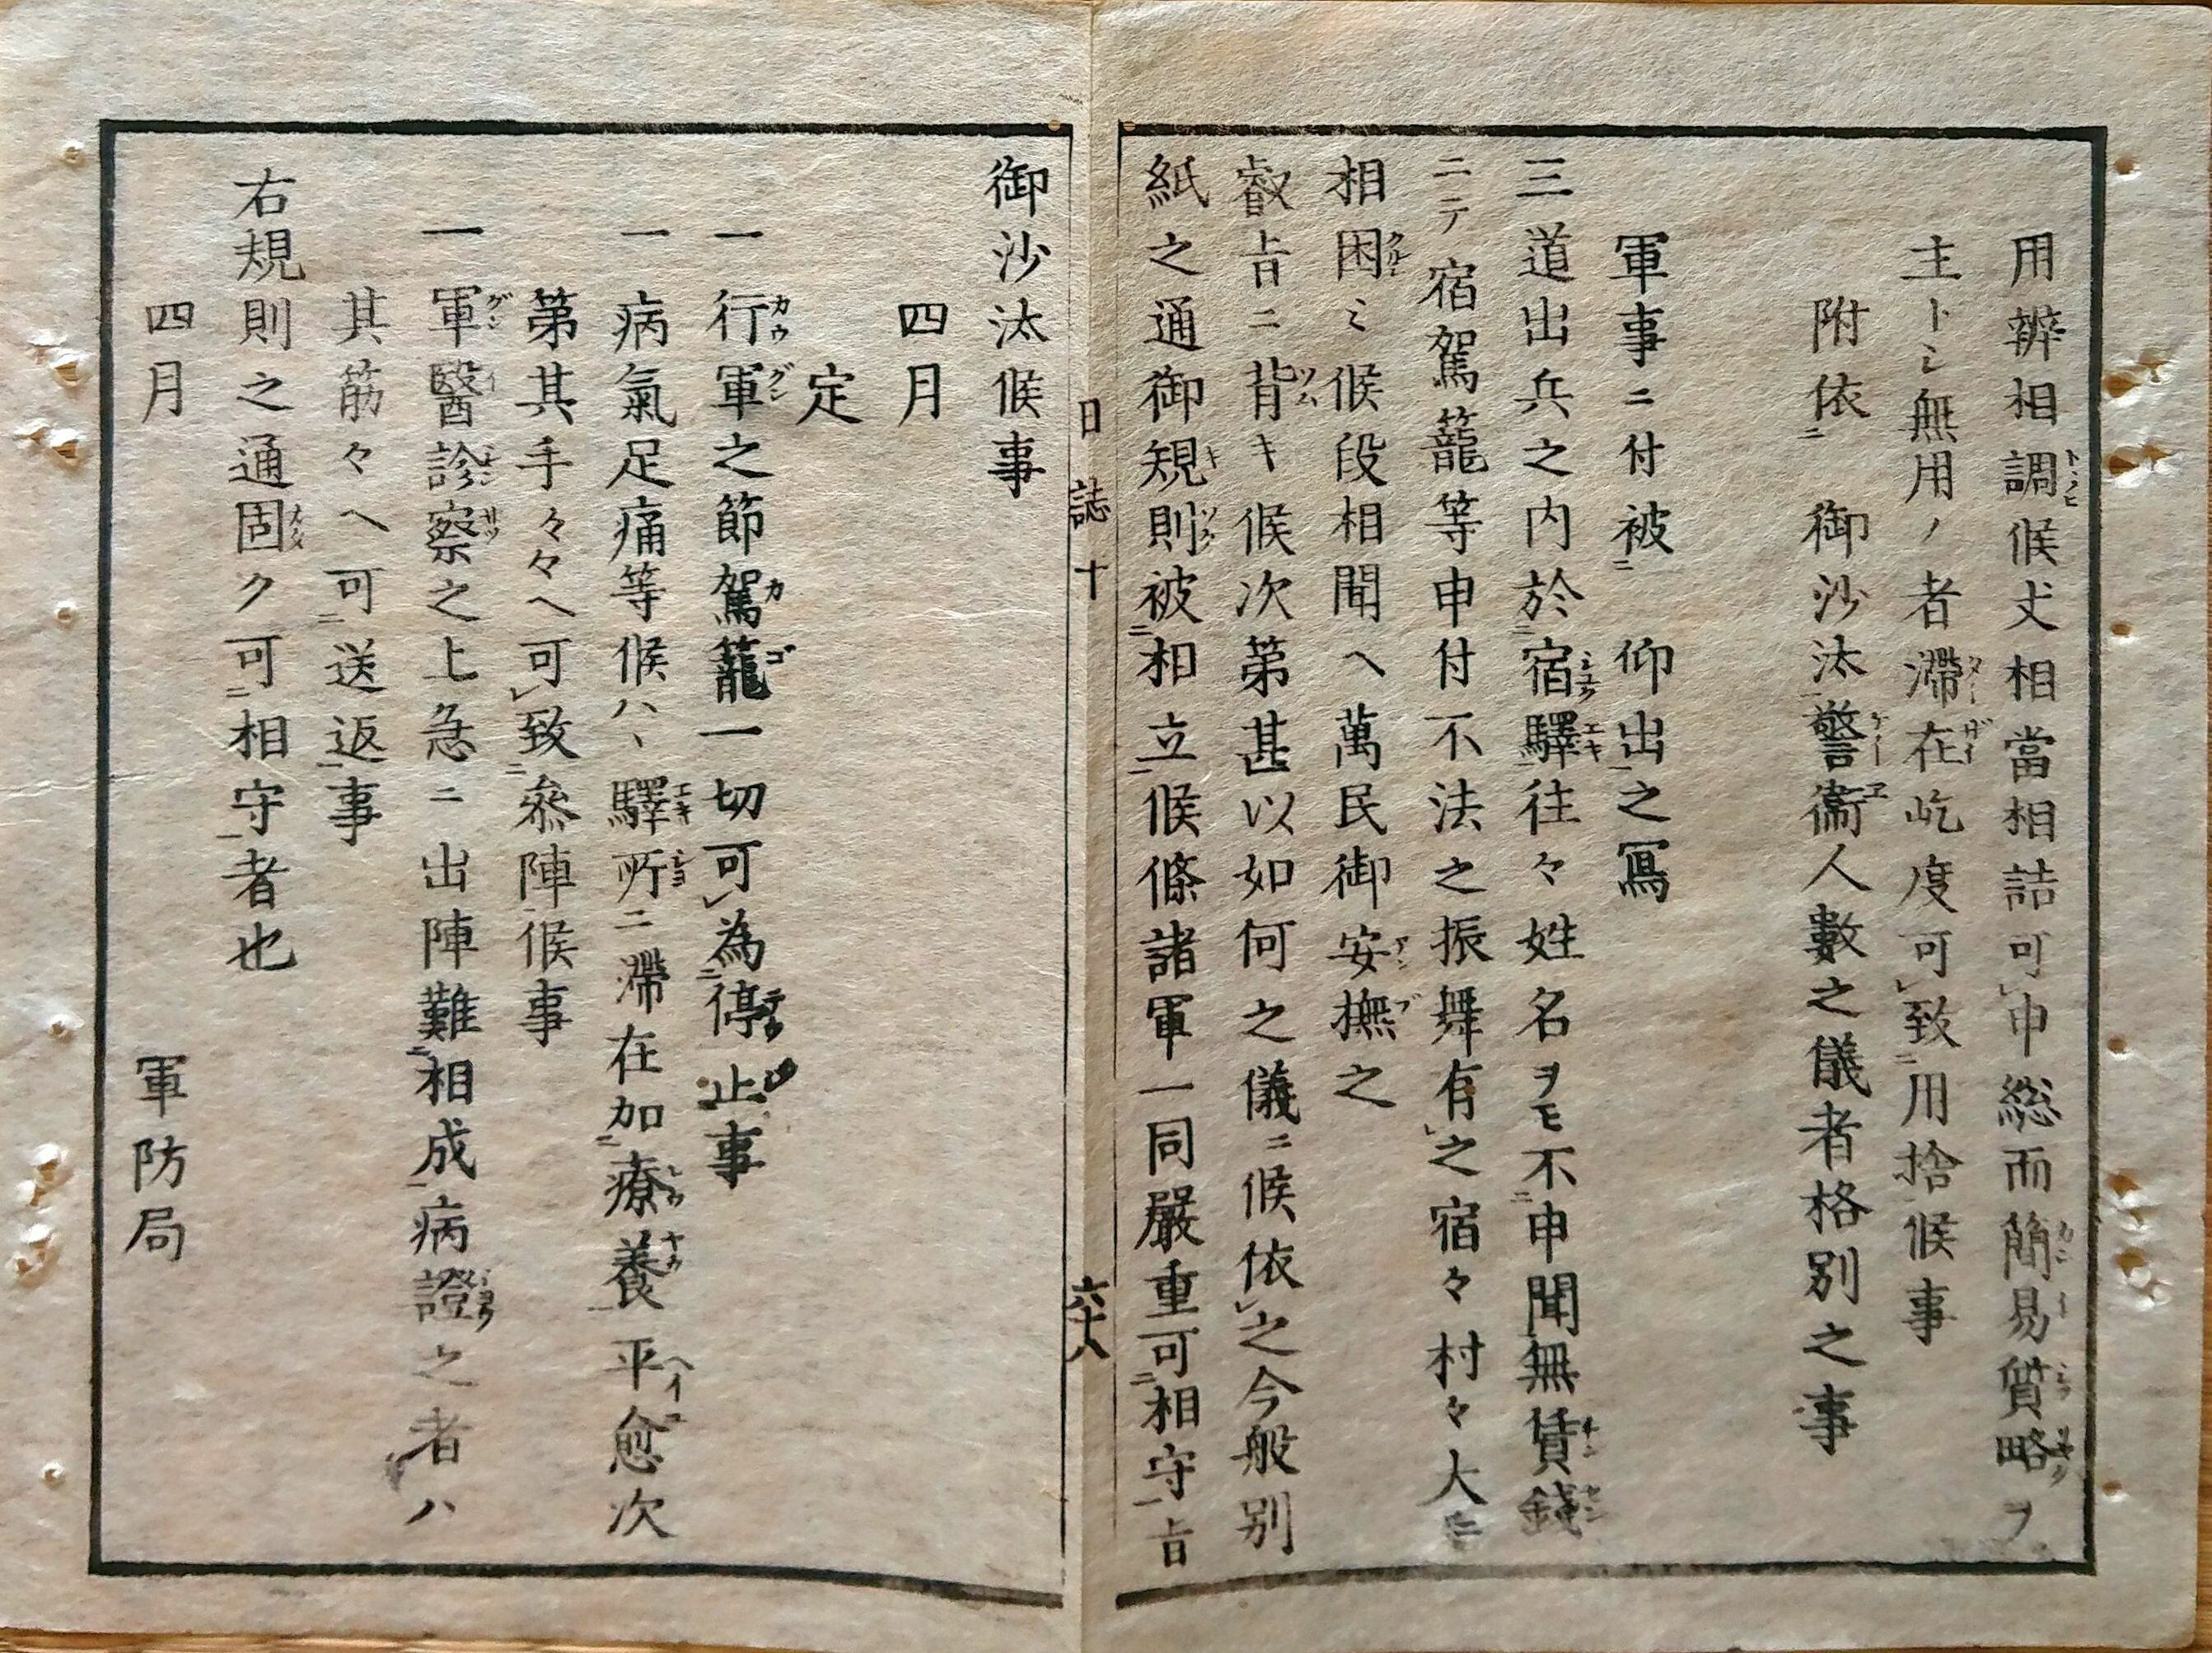 用辨相調候丈相當相詰可申総而簡易質略ヲ
主トシ無用ノ者滞在屹度可致用捨候事
附依 御沙汰警衞人數之儀者格別之事
軍事ニ付被 仰出之冩
三道出兵之内於宿驛往々姓名ヲモ不申聞無賃錢
ニテ宿駕籠等申付不法之振舞有之宿々村々大ニ
相困ミ候段相聞ヘ萬民御安撫之
叡㫖ニ背キ候次第甚以如何之儀ニ候依之今般別
紙之通御規則被相立候條諸軍一同嚴重可相守㫖
日誌十 六十八
御沙汰候事
四月
定
一行軍之節駕籠一切可為停止事
一病氣足痛等候ハヽ驛所ニ滞在加療養平愈次
第其手々々ヘ可致叅陣候事
一軍醫診察之上急ニ出陣難相成病證之者ハ
其筋々ヘ可送返事
右規則之通固ク可相守者也
四月 軍防局